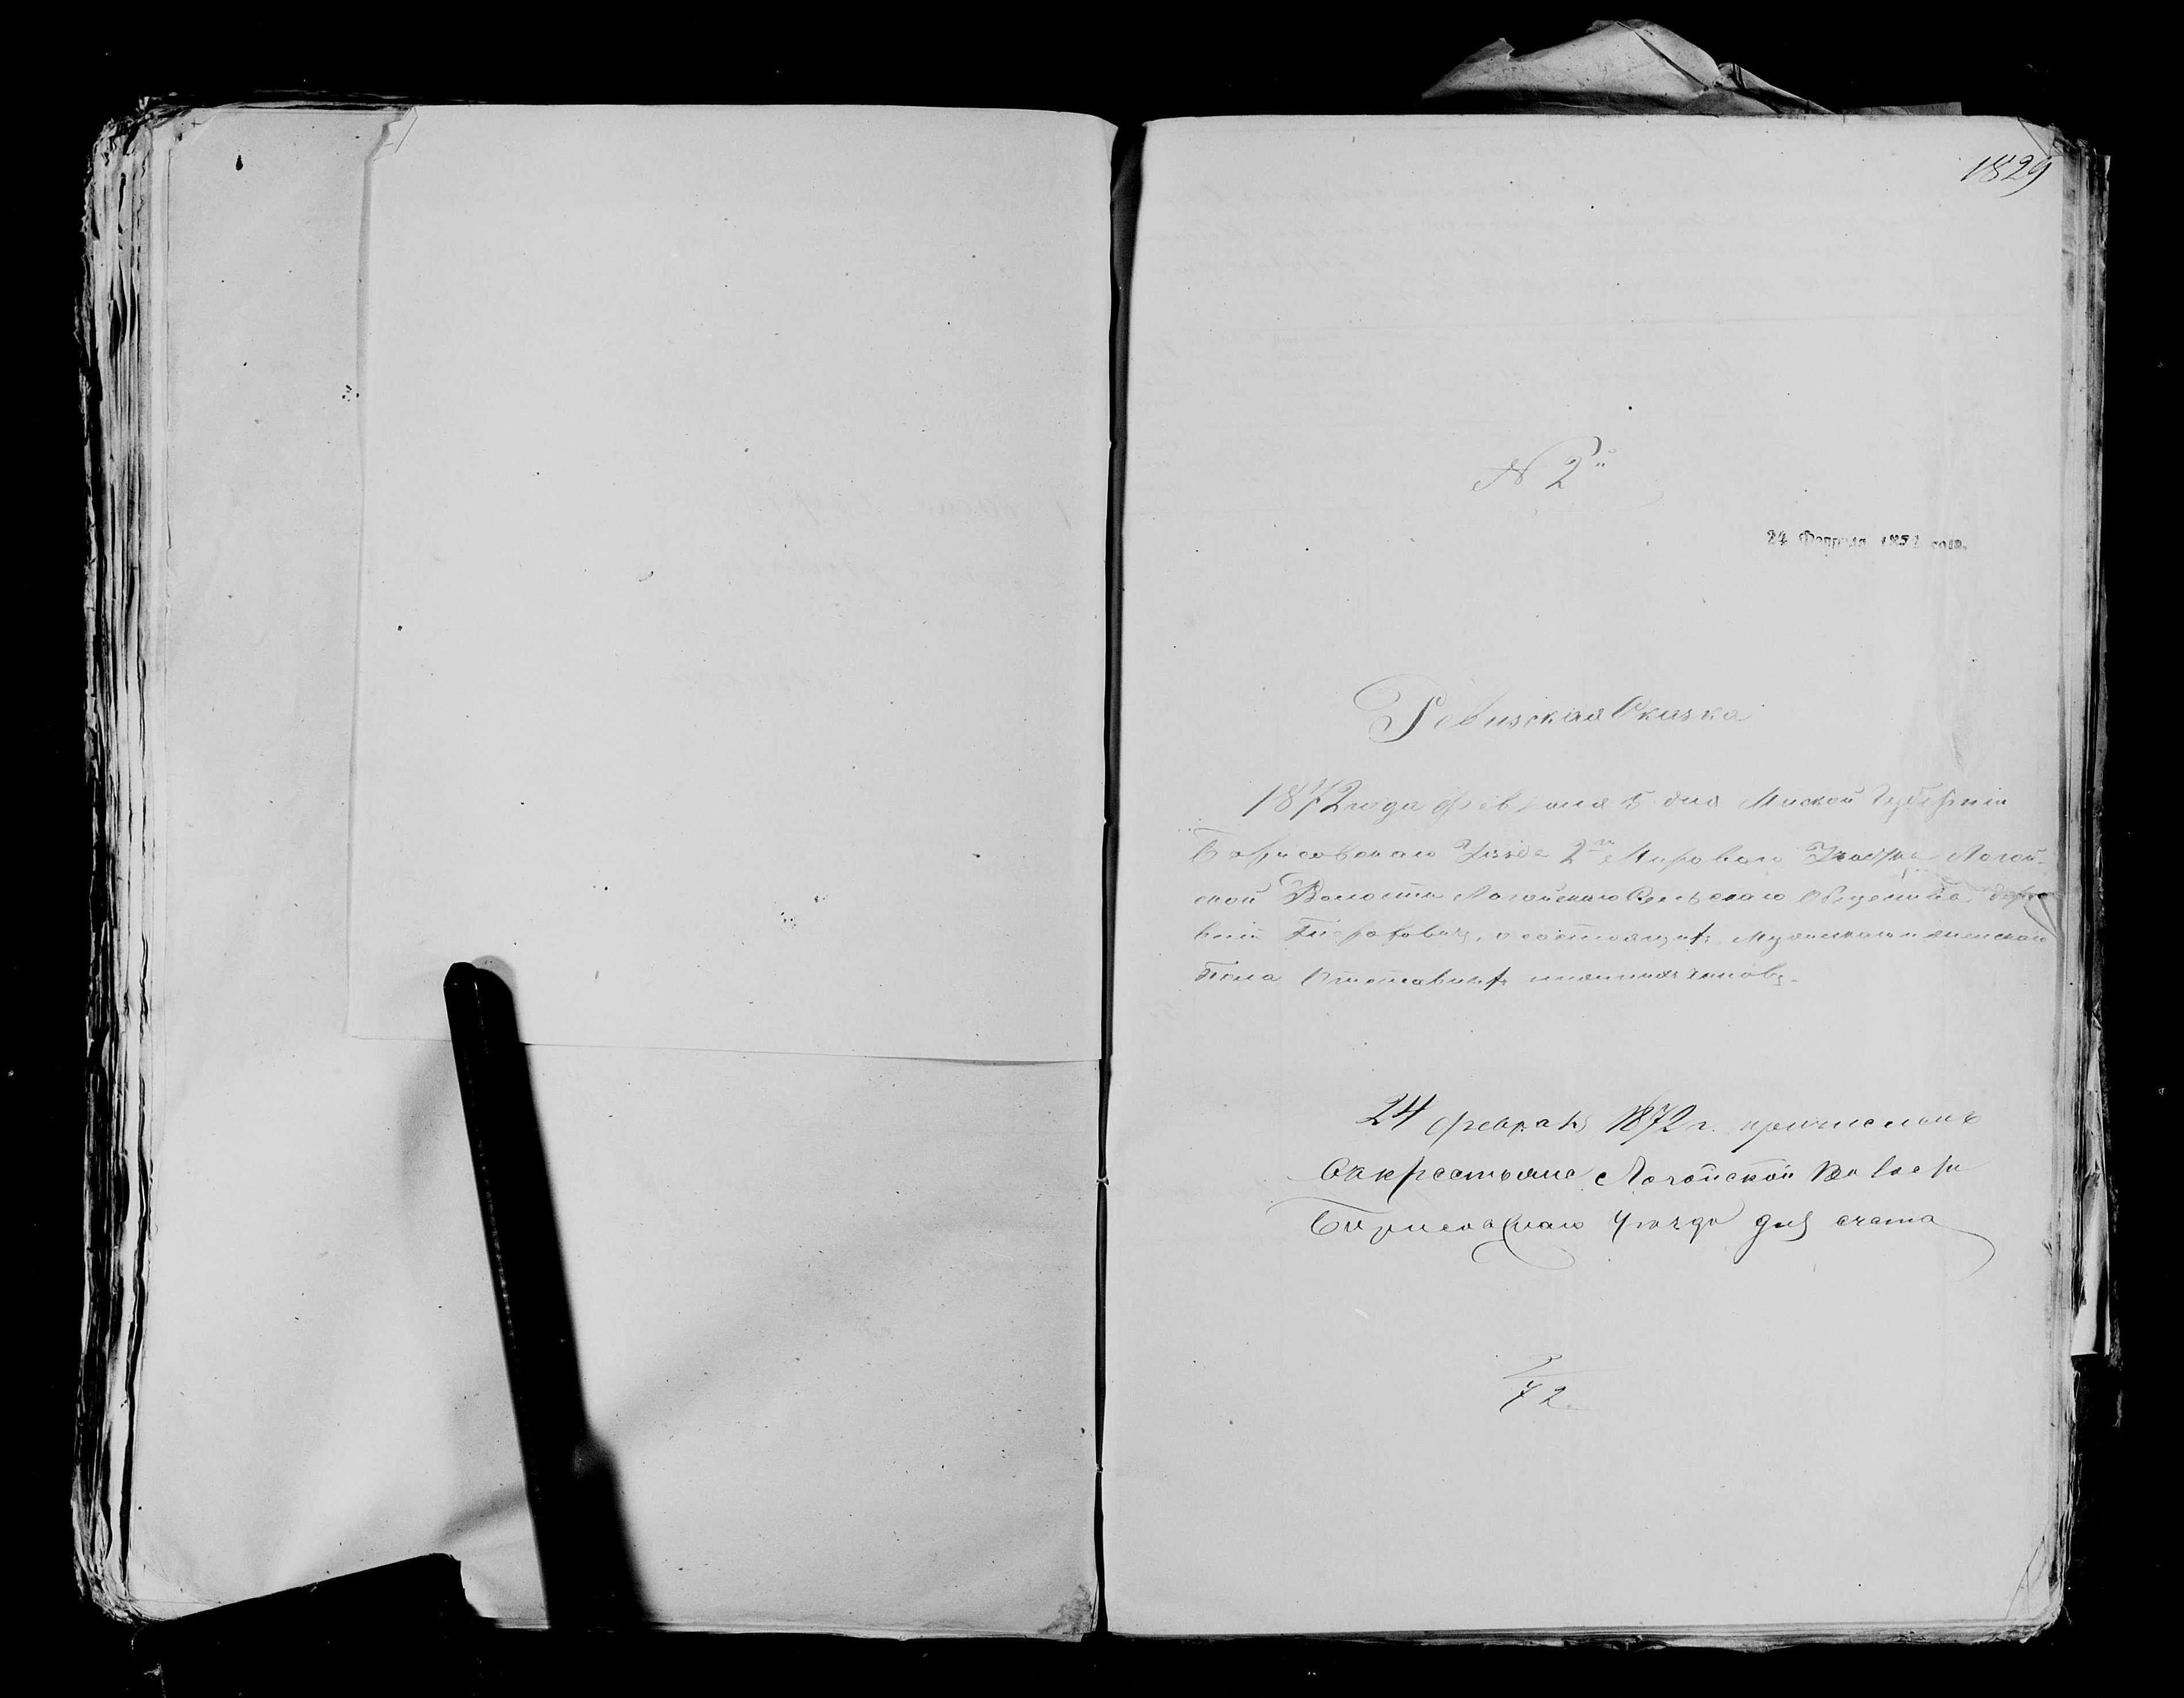 1829
N 2й
24 Февраля 185 года.
Ревизская Сказка
1872 года февраля 5 дня Минской Губерніи
Борисовскаго Уезда 2го Мироваго Участка Логой-
ской Волости Логойскаго Сельскаго Общества дере
вни состоящихъ Мужескаго и женскаго
Пола
24 февраля 1872 г. причислены
въ крестьяне Логойской Волости
Борисовскаго уезда для счета
72